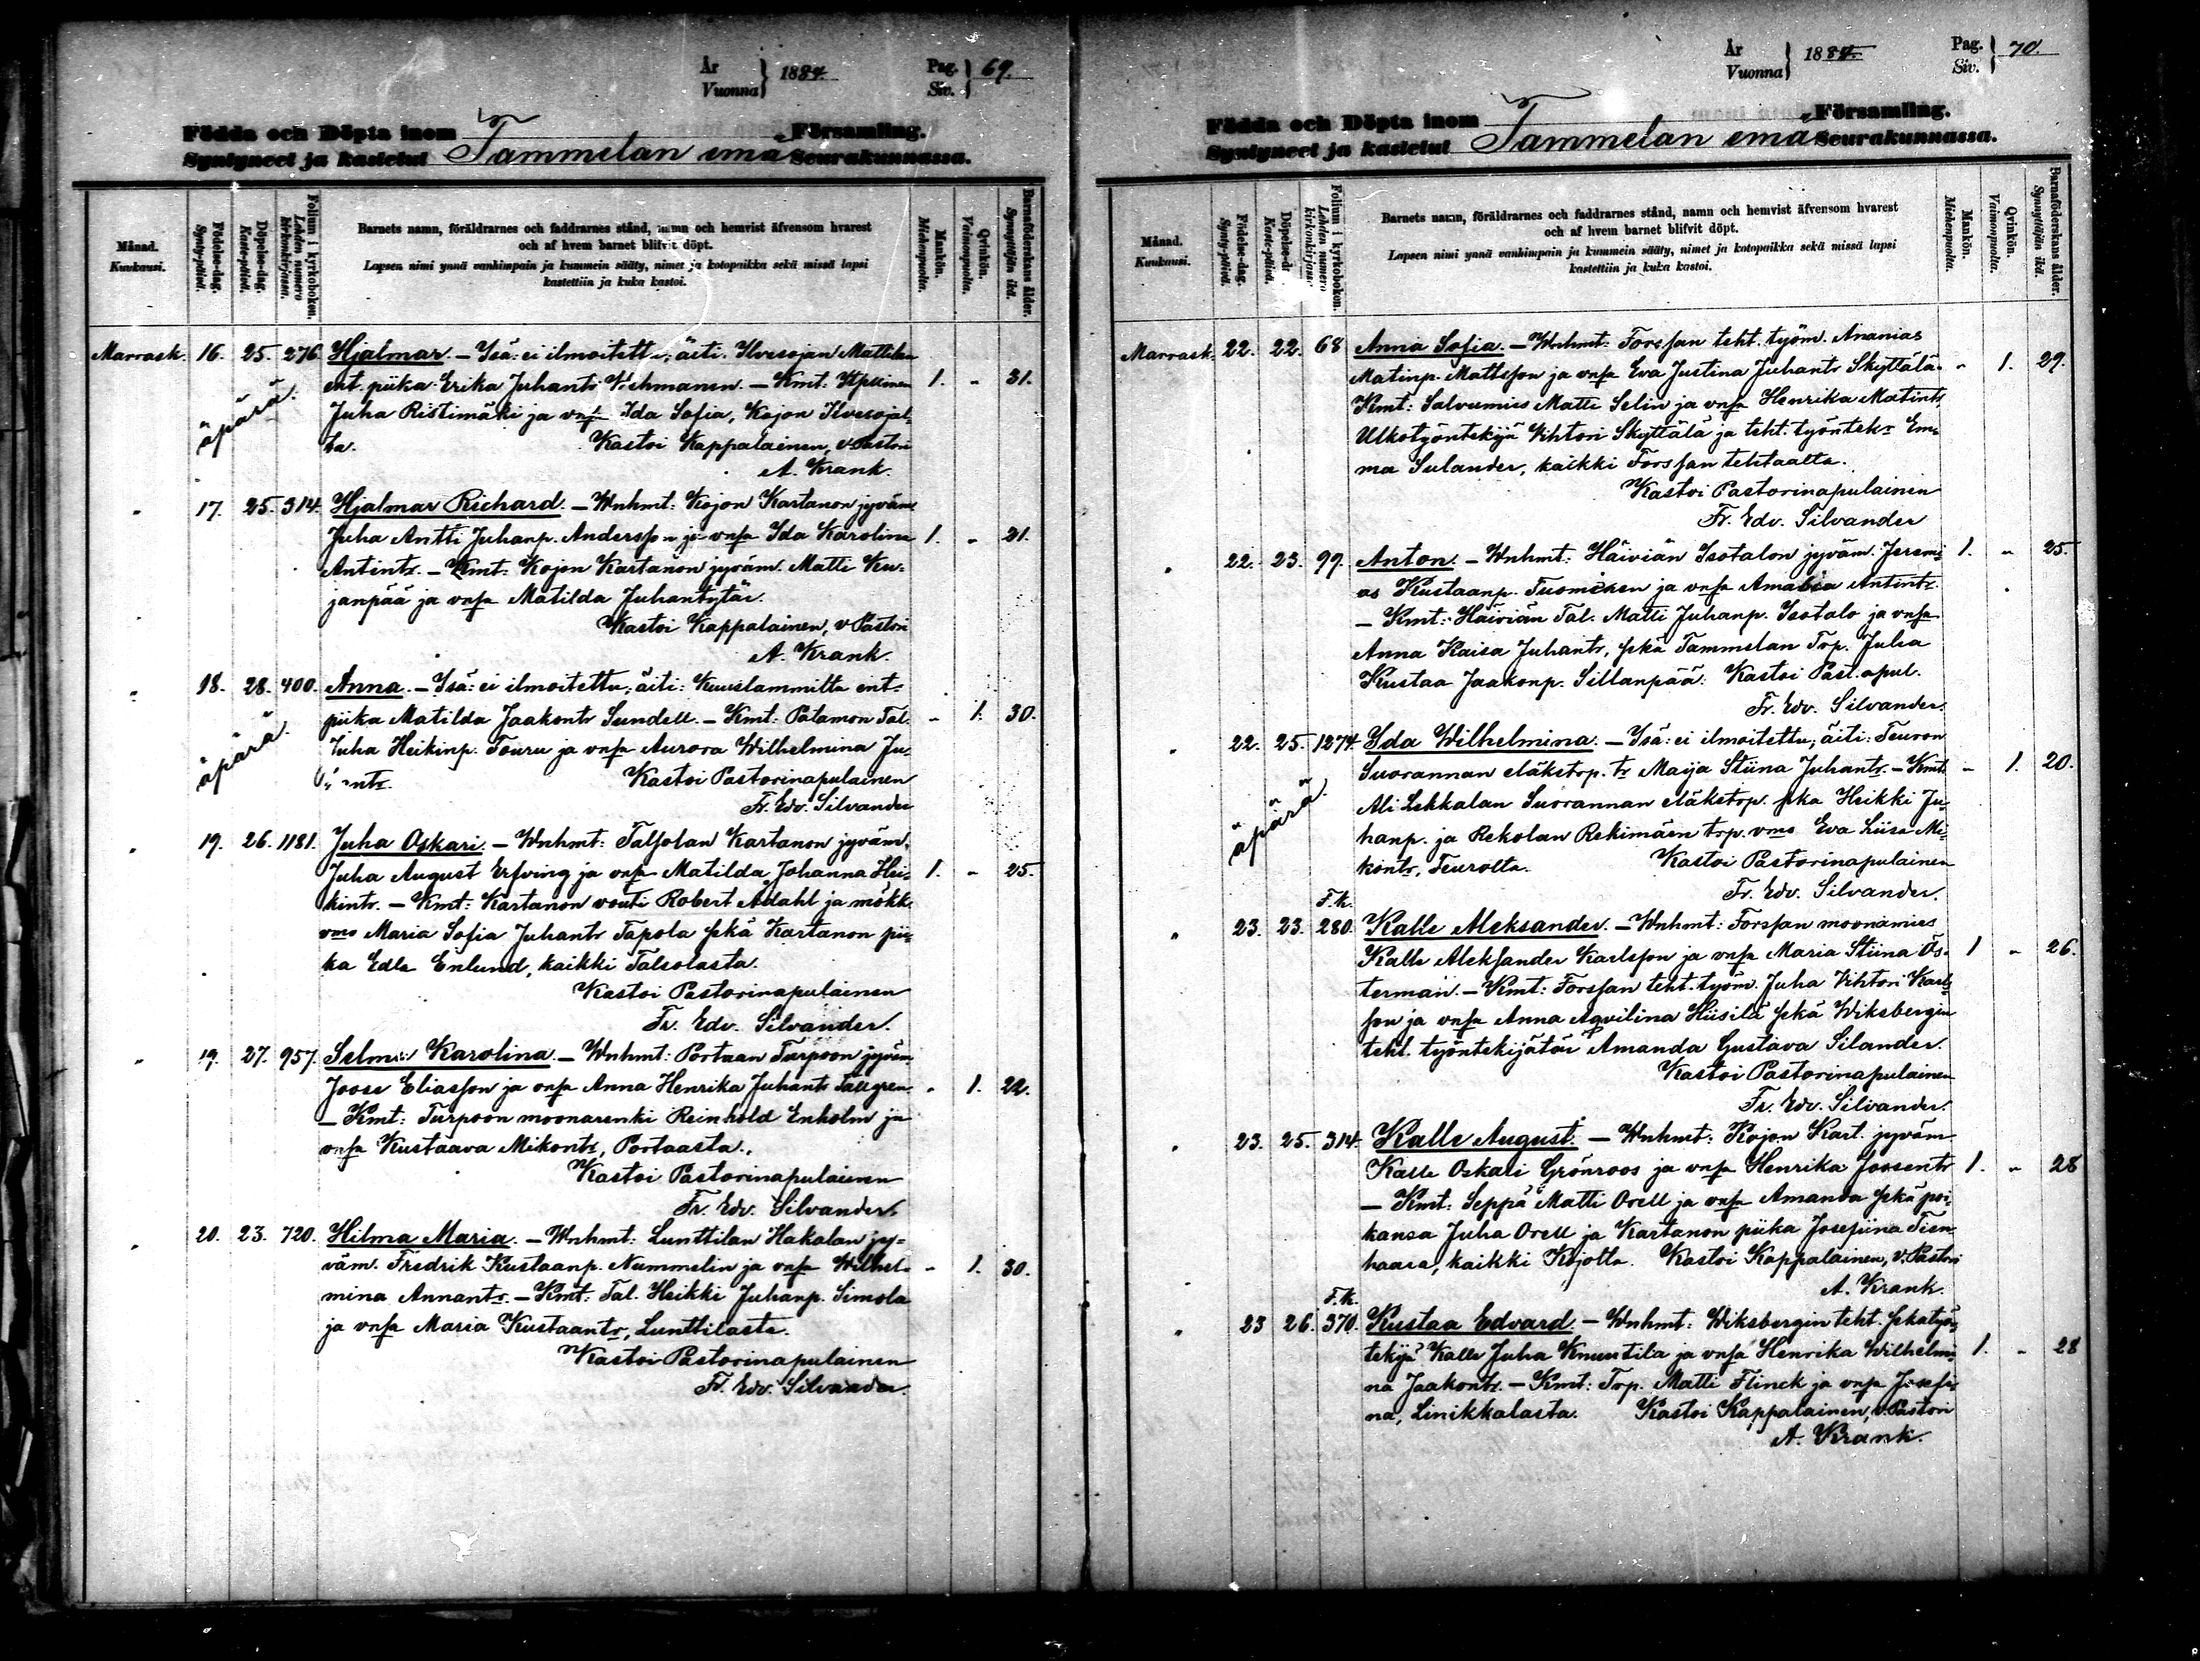 År
Vuonna } 1884.
Pag.
Siv. } 69.
Födda och Döpta inom
Syntyneet ja kastetut Tammelan emä Församling.
Seurakunnassa.
Månad.
Kuukausi.
Födelse-dag.
Synty-päivä.
Döpelse-dag.
Kaste-päivä.
Folium i kyrkoboken.
Lehden numero kirkonkirjassa.
Barnets namn, föräldrarnes och faddrarnes stånd, namn och hemvist äfvensom hvarest
och af hvem barnet blifvit döpt.
Lapsen nimi ynnä vanhimpain ja kummein sääty, nimet ja kotopaikka sekä missä lapsi
kastettiin ja kuka kastoi.
Mankön.
Miehenpuolta.
Qvinkön.
Vaimonpuolta.
Barnaföderskans ålder.
Synnyttäjän ikä.
Marrask. 16. 25. 276. Hjalmar. – Isä: ei ilmoitettu; äiti: Ilvesojan Mattilan
ent. piika Erika Juhantr – Kmt: Itsellinen 1. " 31.
äpärä.
Juha Ristimäki ja vnsa Ida Sofia, Kojon Ilvesojal-
ta. Kastoi Kappalainen, v. Pastori
A. Krank.
" 17. 25. 314. Hjalmar Richard. – Wnhmt: Kojon Kartanon jyväm.
Juha Antti Juhanp. Andersson ja vnsa Ida Karolina 1. " 21.
Antintr. – Kmt: Kojon Kartanon jyväm. Matti Ku-
janpää ja vnsa Matilda Juhantytär.
Kastoi Kappalainen, v. Pastori
A. Krank.
" 18. 28. 400. Anna. – Isä: ei ilmoitettu; äiti: Kuuslammilta ent.
piika Matilda Jaakontr Sundell. – Kmt: Patamon Tal. " 1. 30.
äpärä.
Juha Heikinp. Touru ja vnsa Aurora Wilhelmina Ju-
hantr. Kastoi Pastorinapulainen
Fr. Edv. Silvander
" 19. 26. 1181. Juha Oskari. – Wnhmt: Talsolan Kartanon jyväm.
Juha August Erfving ja vnsa Matilda Johanna Hei- 1. " 25.
kintr. – Kmt: Kartanon vouti Robert Adahl ja mökk.
vmo Maria Sofia Juhantr Tapola sekä Kartanon pii-
ka Edla Enlund, kaikki Talsolasta.
Kastoi Pastorinapulainen
Fr. Edv. Silvander.
" 19. 27. 957. Selma Karolina. – Wnhmt: Portaan Turpoon jyväm.
Joose Eliasson ja vnsa Anna Henrika Juhantr Tallgren. " 1. 22.
– Kmt: Turpoon moonarenki Reinhold Enholm ja
vnsa Kustaava Mikontr, Portaasta.
Kastoi Pastorinapulainen
Fr. Edv. Silvander.
" 20. 23. 720. Hilma Maria. – Wnhmt: Lunttilan Hakalan jy-
väm. Fredrik Kustaanp. Nummelin ja vnsa Wilhel- " 1. 30.
mina Annantr. – Kmt: Tal. Heikki Juhanp. Simola
ja vnsa Maria Kustaantr, Lunttilasta.
Kastoi Pastorinapulainen
Fr. Edv. Silvander.
År
Vuonna } 1884.
Pag.
Siv. } 70.
Födda och Döpta inom
Syntyneet ja kastetut Tammelan emä Församling.
Seurakunnassa.
Månad.
Kuukausi.
Födelse-dag.
Synty-päivä.
Döpelse-d
Kaste-päivä.
Folium i kyrkoboken.
Lehden numero kirkonkirjass
Barnets namn, föräldrarnes och faddrarnes stånd, namn och hemvist äfvensom hvarest
och af hvem barnet blifvit döpt.
Lapsen nimi ynnä vanhimpain ja kummein sääty, nimet ja kotopaikka sekä missä lapsi
kastettiin ja kuka kastoi.
Mankön.
Miehenpuolta.
Qvinkön.
Vaimonpuolta.
Barnaföderskans ålder.
Synnyttäjän ikä.
Marrask. 22. 22. 68 Anna Sofia. – Wnhmt: Forssan teht. työm. Ananias
Matinp. Mattsson ja vnsa Eva Justina Juhantr Skyttälä. " 1. 29.
Kmt: Salvumies Matti Selin ja vnsa Henrika Matintr,
Ulkotyöntekijä Vihtori Skyttälä ja teht. työntek. Em-
ma Sulander, kaikki Forssan tehtaalta.
Kastoi Pastorinapulainen
Fr. Edv. Silvander
" 22. 23. 99. Anton. – Wnhmt: Häiviän Isotalon jyväm. Jeremi- 1. " 25.
as Kustaanp. Tuominen ja vnsa Amalia Antintr.
– Kmt: Häiviän Tal. Matti Juhanp. Isotalo ja vnsa
Anna Kaisa Juhantr, sekä Tammelan Trp. Juha
Kustaa Jaakonp. Sillanpää. Kastoi Past. apul.
Fr. Edv. Silvander.
" 22. 25. 1274. Ida Wilhelmina. – Isä: ei ilmoitettu; äiti: Teuron
Suorannan eläkstrp. tr Maija Stiina Juhantr. – Kmt: " 1. 20.
äpärä
Ali Lekkalan Suorannan eläkstrp. pka Heikki Ju-
hanp. ja Rekolan Rekimäen trp. vmo Eva Liisa Mi-
kontr, Teurolta. Kastoi Pastorinapulainen
Fr. Edv. Silvander.
F.k.
" 23. 23. 280. Kalle Aleksander. – Wnhmt: Forssan moonamies
Kalle Aleksander Karlsson ja vnsa Maria Stiina Ös- 1 " 26.
terman. – Kmt: Forssan teht. työm. Juha Vihtori Karls-
son ja vnsa Anna Aqvilina Hiisilä sekä Wiksbergin
teht. työntekijätär Amanda Gustava Silander.
Kastoi Pastorinapulainen
Fr. Edv. Silvander.
" 23. 25. 314. Kalle August. – Wnhmt: Kojon Kart. jyväm
Kalle Oskari Grönroos ja vnsa Henrika Joosentr 1. " 28
– Kmt: Seppä Matti Orell ja vnsa Amanda sekä poi-
kansa Juha Orell ja Kartanon piika Josefiina Tien-
haara, kaikki Kojolta. Kastoi Kappalainen, v. Pastori
A. Krank.
F.k.
" 23 26. 370. Kustaa Edvard. – Wnhmt: Wiksbergin teht. sekatyön-
tekijä Kalle Juha Knuutila ja vnsa Henrika Wilhelmi- 1. " 28
na Jaakontr. – Kmt: Trp. Matti Flinck ja vnsa Josefi-
na, Linikkalasta. Kastoi Kappalainen, v. Pastori
A. Krank.